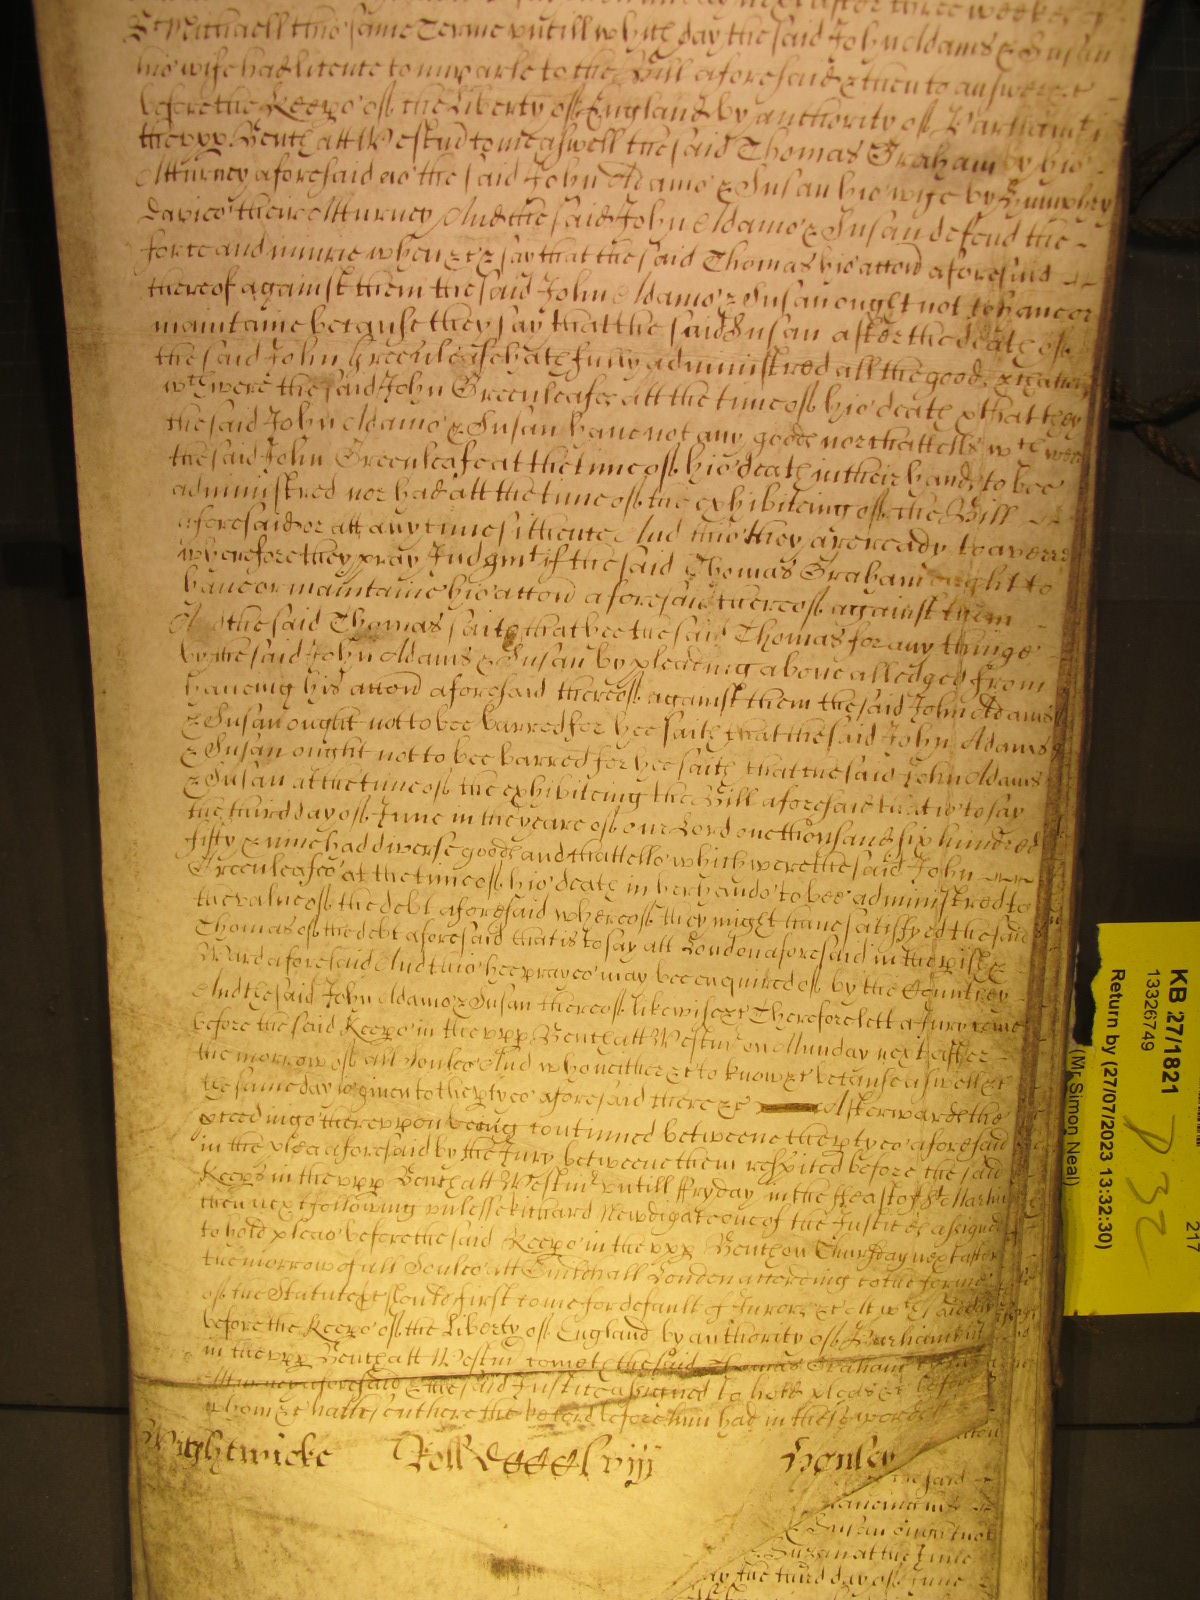 St Michaell this same Terme untill which day the said John Adams & Susan
his wife had licence to imparle to the Bill aforesaid & then to answere &c
before the Keeps of the Liberty of England by authority of Parliamt in
the upp Bench att Westm come aswell the said Thomas Graham by his
Atturney aforesaid as the said John Adams & Susan his wife by Humphry
Davies there Atturney And the said John Adams & Susan defend the
force and iniurie when &c & say that the said Thomas his accon aforesaid
thereof against them the said John Adams & Susan ought not to have or
maintaine because they say that the said Susan after the death of
the said John Greenleafe hath fully administred all the goods & chattells
wch were the said John Greenleafes att the time of his death & that they
the said John Adams & Susan have not any goods nor chattells wch were
the said John Greenleafe at the time of his death in their hands to bee
administred nor had att the time of the exhibiteing of the Bill
aforesaid or att any time sithence And this they are ready to averre
wherefore they pray Judgmt if the said Thomas Graham ought to
have or maintaine his accon aforesaid thereof against them
And the said Thomas saith that hee the said Thomas for any thinge
by the said John Adams & Susan by pleading above alledged from
haveing his accon aforesaid thereof against them the said John Adams
& Susan ought not to bee barred for hee saith that the said John Adams
& Susan ought not to bee barred for hee saith that the said John Adams
& Susan at the time of the exhibiteing the Bill aforesaid that is to say
the third day of June in the yeare of our Lord one thousand six hundred
fifty & nine had diverse goods and chattells which were the said John
Greenleafes at the time of his death in her hands to bee administred to
the value of the debt aforesaid whereof they might have satisfyed the said
Thomas of the debt aforesaid that is to say att London aforesaid in the pish &
Ward aforesaid And this hee prayes may bee enquired of by the Countrey
And the said John Adams & Susan thereof likewise &c Therefore lett a Jury come
before the said Keeps in the upp Bench att Westmr on Munday next after
the morrow of all Soules And who neither &c to knowe &c because aswell &c
the same day is given to the ptyes aforesaid there &c Afterwards the
pceedings thereupon being continued betweene the ptyes aforesaid
in the plea aforesaid by the Jury betweene them respited before the said
Keeps in the upp Bench att Westmr untill ffryday in the ffeast of St Martin
then next following unlesse Richard Newdigate one of the Justices assigned
to hold pleas before the said Keeps in the upp Bench on Thursday next after
the morrow of all Soules att Guildhall London according to the forme
of the Statute &c should first come for default of Jurors &c Att wch said day
before the Keeps of the Liberty of England by authority of Parliament
in the upp Bench att Westm cometh the said Thomas Graham by his
Atturney aforesaid & the said Justice assigned to hold pleas &c before
whom &c hath sent here the Record before him had in these words
Wightwicke Roll CCCClviij Henley
the said
haveing his
& Susan ought not
& Suzan at the time
ay the third day of June
KB 27/1821
13326749
Return by (27/07/2023 13:32:30)
(Mr Simon Neal)
217
P32